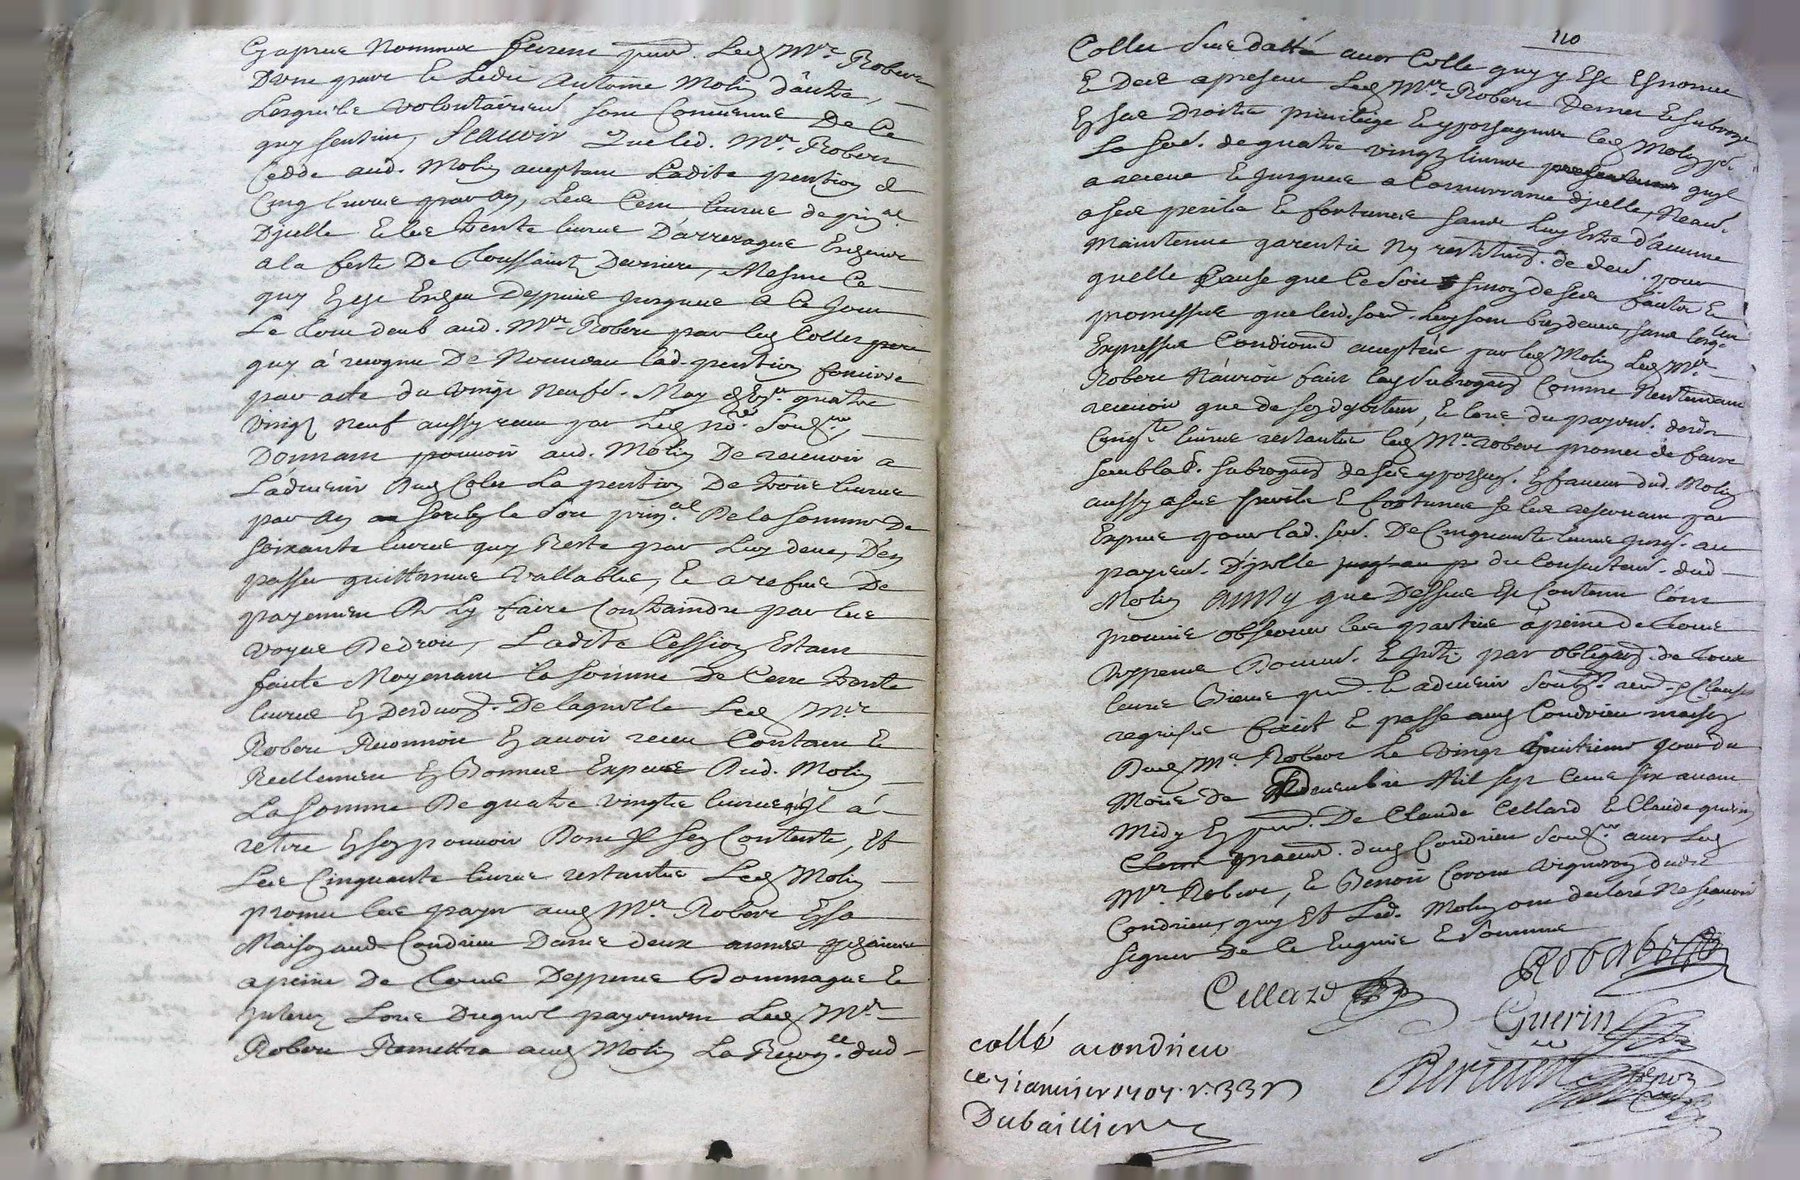 Cy apres nommes furent pnt. Led. Mr. Robert
D'une part et Ledit Antoine Molin d'autre,
Lesquels volontairemt sont Convenus De Ce
quy sensuit, Scauoir Que led. Mr. Robert
Cedde aud. Molin acceptant Ladite pention de
Cinq liures par an, Les Cent liures de prin.al
D'jcelle Et les trente liures D'arrerages Escheus
a la feste De Toussaints Derniere, Mesme Ce
quy Est Escheu Despuis jusques a Ce jour
Le tout deub aud. Mr. Robert par led. Collet
quy a recognu De Nouueau lad. pention
par acte du vingt neuf. May quatre
vingt neuf aussy receu par Led. no.re Soub.ne
Donnant pouuoir aud. Molin De receuoir a
L'aduenir Dud. Colet La pention De trois liures
par an soubz le Sort prin.al De la somme De
soixante liures quy Reste par Luy deue, D'en
passer quittances Vallables, Et a refus De
payement De Ly faire Contraindre par les
voyes De droit, Ladite Cession Estant
faite Moyenant la somme De Cent trente
liures En Deduon. De laquelle Led. Mr.
Robert Reconnoit En auoir receu Contant Et
Reellement En Bonnes Especes Dud. Molin
La Somme De quatre vingts liures quil a
retiré En son pouuoir Dont Jl sen Contente, Et
Les Cinquante liures restantes Led. Molin
promet les payer aud. Mr. Robert En sa
Maison aud. Condrieu Dans deux années prochaines
a peine De tous Despens Dommages Et
Interez Lors Duquel payement Led. Mr.
Robert Remettra aud. Molin La Recog.ce dud.
110
Collet Sus dattée auec Celle quy y Est Esnoncée
Et Des a present Led. Mr. Robert Demet Et subroge
En ses Droits priuilege Et yppotheques led. Molin pr.
La som. de quatre vingts liures quil
a receue Et jusques a la Concurrance djcelle, Neant.
a ses perils Et fortunes sans Luy Estre d'aucune
Maintenue garentie Ny restitu.on de den. pour
quelle Cause que Ce soit sinon de ses faits Et
promesses que lad. som. luy sont bien deues sans
Expresse Condition acceptée par led. Molin Led. Mr.
Robert N'auroit fait lad. subrogaon Comme N'entendant
receuoir que de son debiteur, Et lors du payemt. desd.
Cinq.te liures restantes led. Mr. Robert promet de faire
semblab. subrogaon de ses yppotheq. En faueur dud. Molin
aussy a ses perils Et fortunes se les reseruant par
Expres pour lad. som. De Cinquante liures jusq. au
payem. D'jcelle du Consentem. dud.
Molin AINSY que Dessus Est Contenu l'ont
promis obseruer les parties a peine de tous
Despens Domm. Et Intz par obligaon. de tous
leurs Biens pnt. Et aduenir Soub.on renon. Et Clauses
requises Fait Et passé aud. Condrieu maison
Dud. Mr. Robert Le vingt huitieme jour du
Mois de Nouembre Mil sept Cents six auant
Midy En pnce. De Claude Cellard Et Claude guerin
praticien. dud. Condrieu Soub.né auec Led.
Mr. Robert, Et Benoit Corom vigneron dudit
Condrieu, quy Et Led. Molin ont declaré Ne scauoir
signer De Ce Enquis Et sommes
Cellard
Robert
Guerin
collé a condrieu
ce 7 ianuier 1707
Dubaillier